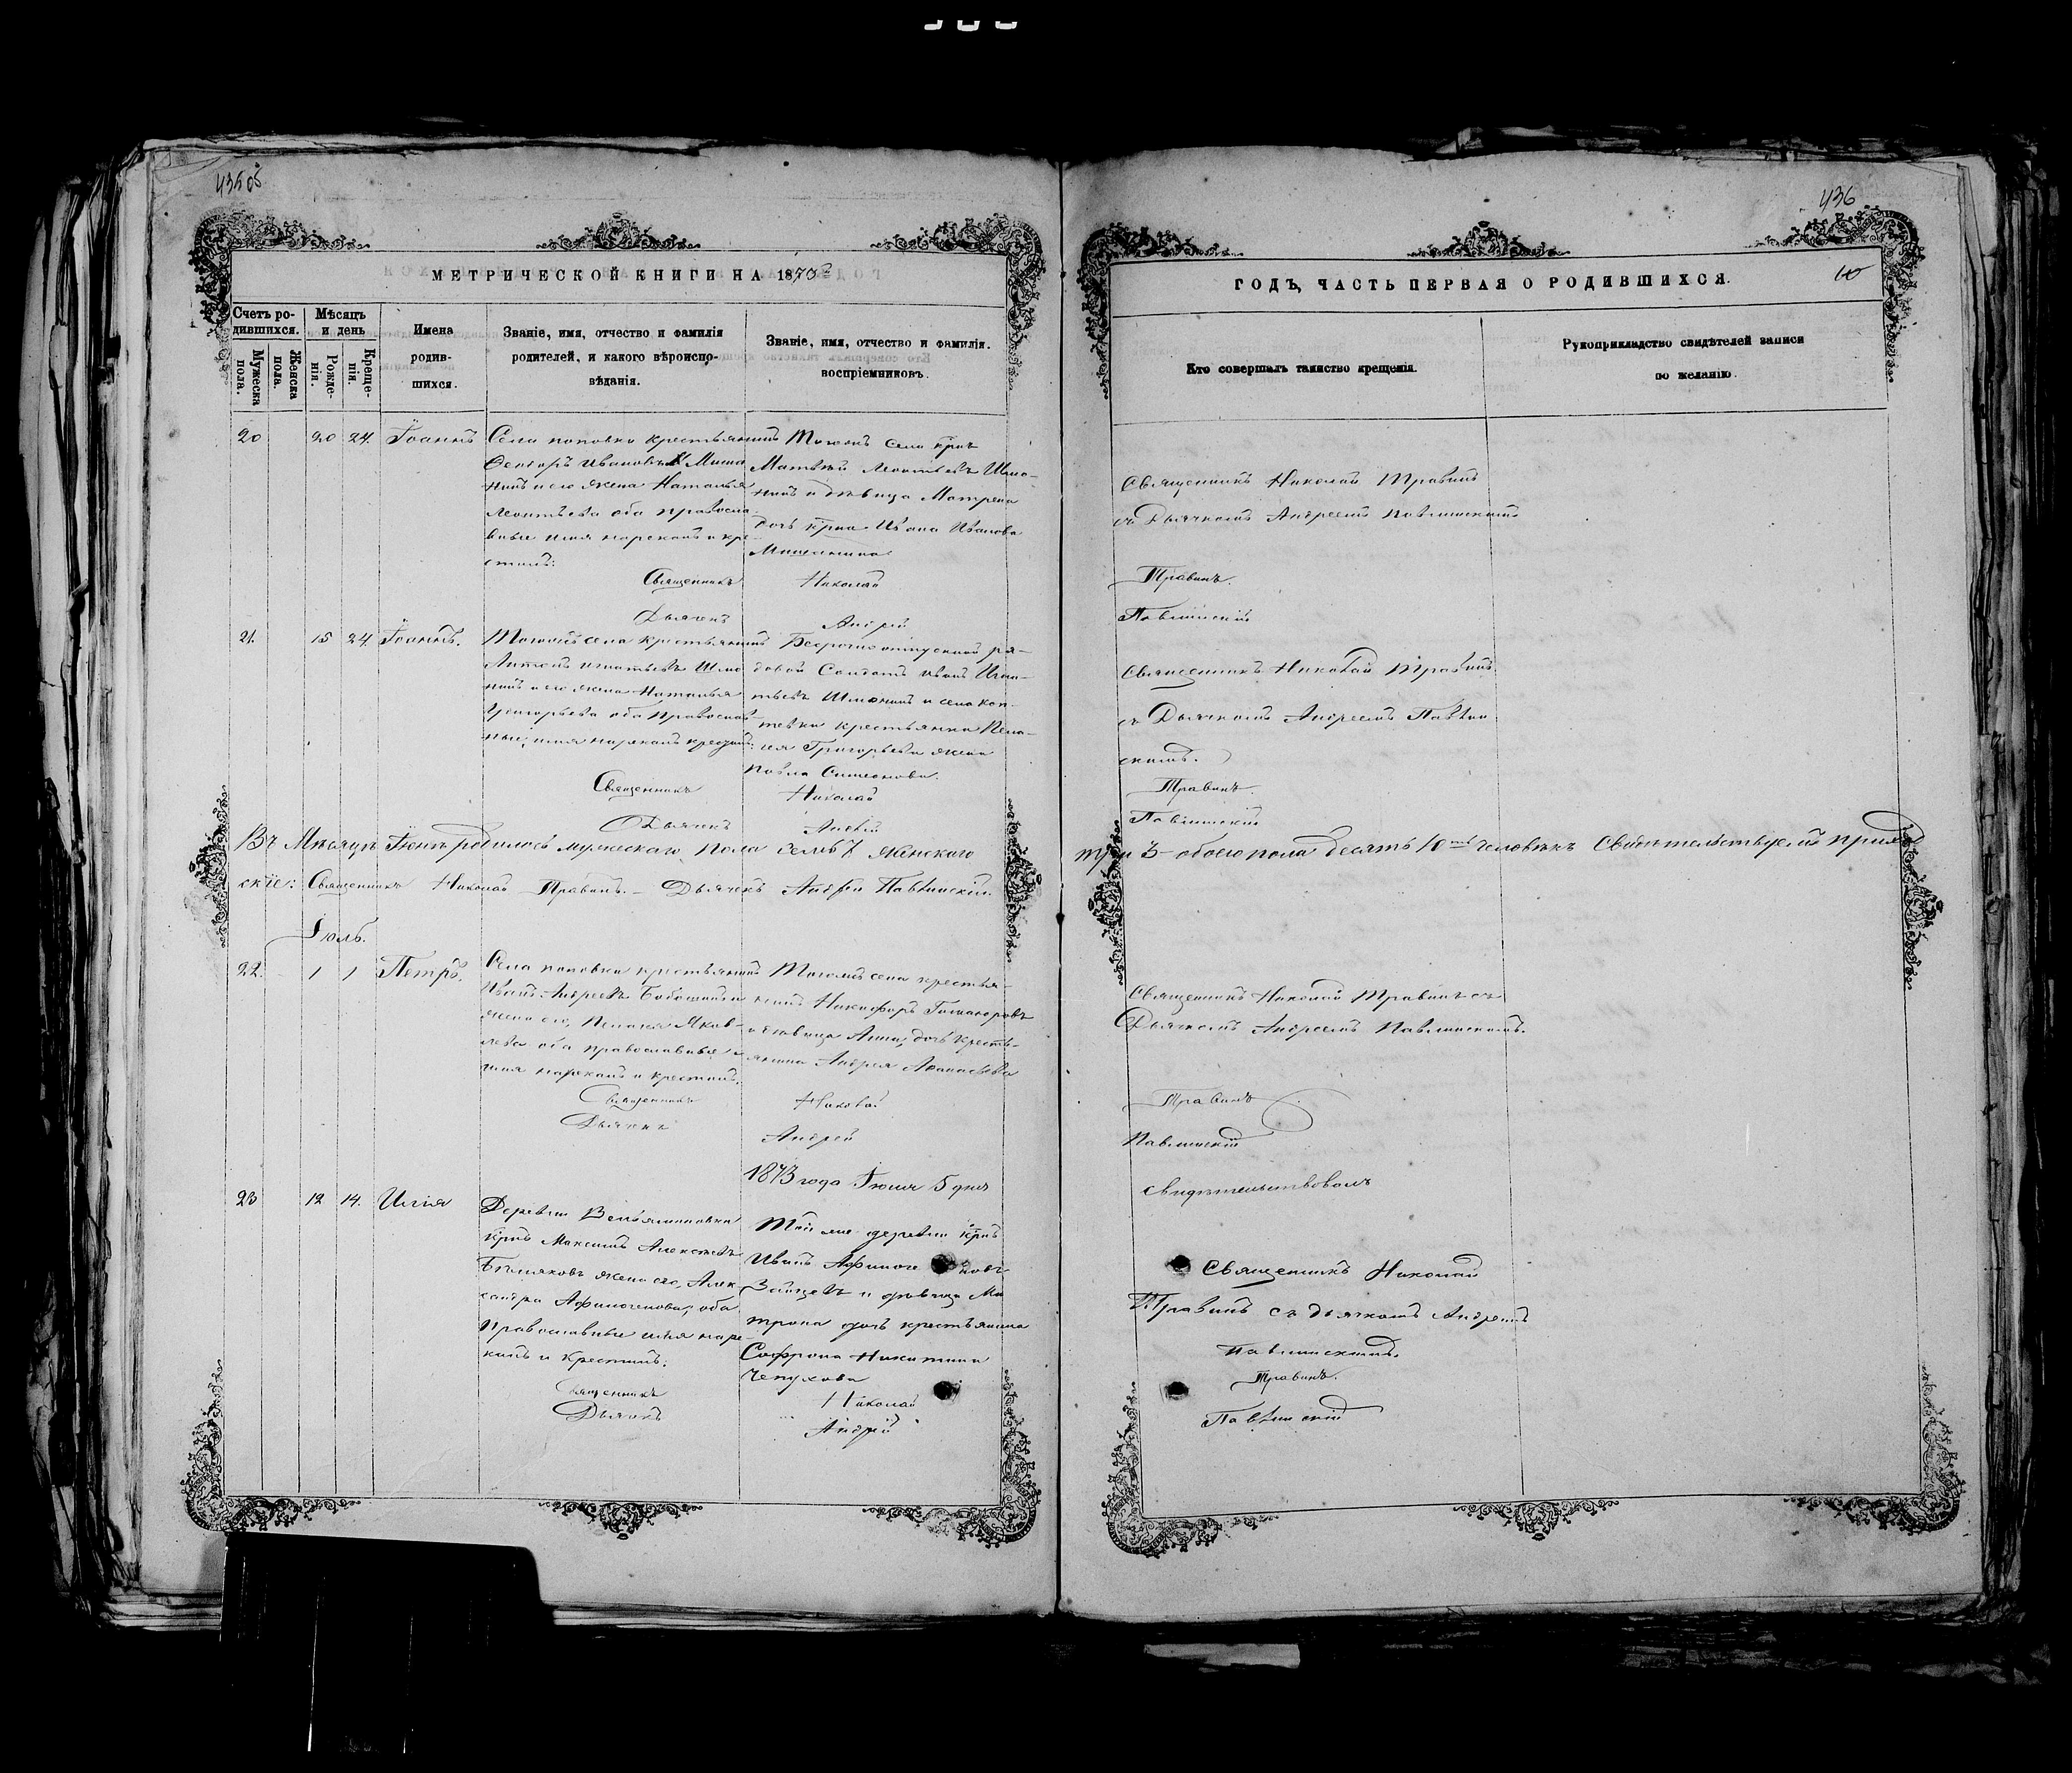 435об
436
МЕТРИЧЕСКОЙ КНИГИ НА 1873
ГОДЪ, ЧАСТЬ ПЕРВАЯ О РОДИВШИХСЯ.
10
Счетъ ро-
дившихся.
Мужеска
пола.
Женска
пола.
Мѣсяцъ
и день
Рожде-
нія.
Креще-
нія.
Имена
родив-
шихся.
Званіе, имя, отчество и фамилія
родителей, и какого вѣроиспо-
вѣданія.
Званіе, имя, отчество и фамилія.
воспріемниковъ.
Кто совершалъ таинство крещенія.
Рукоприкладство свидѣтелей записи
по желанію.
20 20 24. Іоаннъ
Села поповки крестьянинъ
Ѳеодоръ Ивановъ Миша
нинъ и его жена Наталья
Леонтьева оба правосла-
вные имя нарекалъ и кре
стилъ:
Тогожъ села крнъ
Матвѣй Леонтьевъ Шмо-
нинъ и дѣвица Матрена
дочь крна Ивана Иванова
Мишанина
Священникъ Николай
Дьячекъ Андрей
Священникъ Николай Травинъ
съ Дьячкомъ Андреемъ Павлинскимъ
Травинъ.
Павлинскій
21. 15 24. Іоаннъ.
Тогожъ села крестьянинъ
Антонъ Игнатьевъ Шмо
нинъ и его жена Наталья
Григорьева оба православ
ные, имя нарекалъ крестилъ:
Безсрочноотпускной ря-
довой Солдатъ Иванъ Игна-
тьевъ Шмонинъ и села Коп-
тевки крестьянка Пела-
гея Григорьева жена
Павла Симеонова.
Священникъ Николай
Дьячекъ Андрей
Священникъ Николай Травинъ
съ Дьячкомъ Андреемъ Павлин
скимъ.
Травинъ
Павлинскій
Въ Мѣсяцѣ Іюнѣ родилось мужескаго пола семь 7 женскаго
три 3 - обоего пола десять 10ть человѣкъ Свидѣтельствуемъ
скіе: Священникъ Николай Травинъ. - Дьячекъ Андрей Павлинскій.
Іюль.
22. 1 1 Петръ.
Села поповки крестьянинъ
Иванъ Андреевъ и
жена его, Пелагея Яков-
лева оба православные
имя нарекалъ и крестилъ.
Тогожъ села крестья-
нинъ Никифоръ
и дѣвица Анна, дочь кресть-
янина Андрея Аѳанасьева
Священникъ Николай
Дьячекъ Андрей
Священникъ Николай Травинъ съ
Дьячкомъ Андреемъ Павлинскимъ.
Травинъ
Павлинскій
1873 года Іюля 5 дня
свидѣтельствовалъ
23 12 14. Илія
Деревни Веньяминовки
крнъ Максимъ Алексѣевъ
Бѣляковъ жена его, Алек-
сандра Афиногенова, оба
православные имя наре
калъ и крестилъ:
Той же деревни крнъ
Иванъ Афиногеновъ
Зайцевъ и дѣвица Ма
трона дочь крестьянина
Софрона Никитина
Чепухова
Священникъ Николай
Дьячекъ Андрей
Священникъ Николай
Травинъ съ дьячкомъ Андреемъ
Павлинскимъ.
Травинъ.
Павлинскій